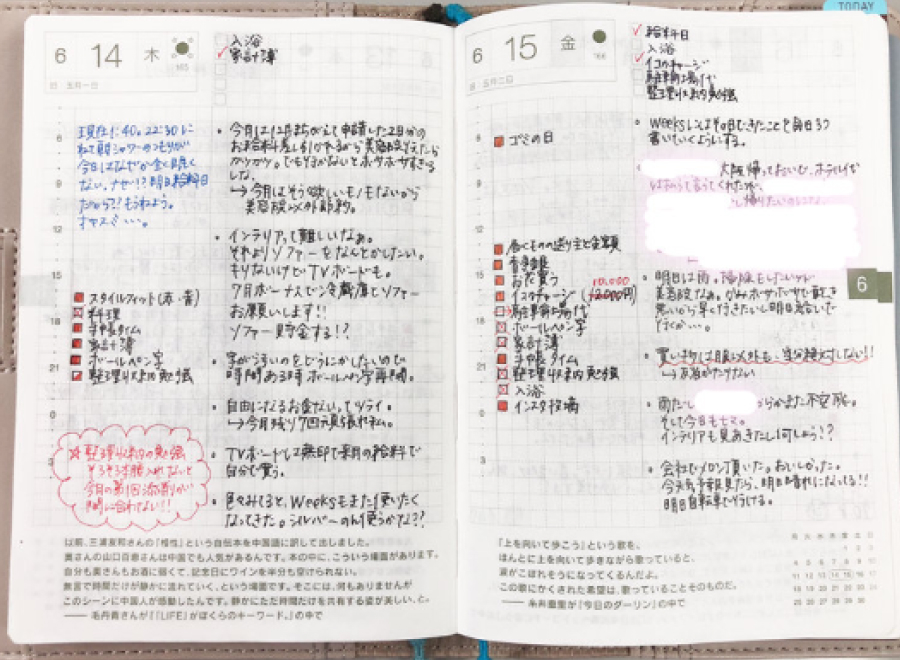 TODAY
6 14 木
165
旧 五月一日
入浴
家計簿
現在1:40。22:30に
ねて朝シャワーのつもりが
今日はなぜか全く眠く
ない。ナゼ!?明日給料日
だから?!もうねよう。
オヤスミ…。
6
9
12
15
18
21
0
3
スタイルフィット(赤・青)
料理
手帳タイム
家計簿
ボールペン字
整理収納勉強
☆整理収納の勉強
そろそろ本腰入れないと
今月の第1回添削が
間に合わない!!
・今月は12月まちがえて申請した2日分の
お給料差し引かれるから美容院考えたら
かつかつ。でも行かないとボサボサすぎる
しな。
→今月はそう欲しいモノもないから
美容院以外節約。
・インテリアって難しいなぁ。
それよりソファーをなんとかしたい。
キリないけどTVボードも。
7月ボーナスで冷蔵庫とソファー
お願いします!!
ソファー貯金する!?
・字がきたないのをどうにかしたいので
時間ある時ボールペン字再開。
・自由になるお金ないってツライ。
→今月残り
・TVボードは無印で来月の給料で
自分で買う。
・色々みてると、Weeksもまた使いたく
なってきた。シルバーのん使うかな??
以前、三浦友和さんの『相性』という自伝本を中国語に訳して出しました。
奥さんの山口百恵さんは中国でも人気があるんです。本の中に、こういう場面があります。
自分も奥さんもお酒に弱くて、記念日にワインを半分も空けられない。
無言で時間だけが静かに流れていく、という場面です。そこには、何もありませんが
このシーンに中国人が感動したんです。静かにただ時間だけを共有する姿が美しい、と。
―― 毛丹青さんが『「LIFE」がぼくらのキーワード。』の中で
6 15 金
166
旧 五月二日
給料日
入浴
イコカチャージ
駐輪場代
整理収納勉強
6
9
12
15
18
21
0
3
ゴミの日
届くもの送り主と金額
青手帳
お花買う
10,000
イコカチャージ(12,000円)
駐輪場代
ボールペン字
家計簿
手帳タイム
整理収納勉強
入浴
インスタ投稿
・weeksにはその日できたことを毎日3つ
書いていくようにする。
大阪帰っておいで、ホテル代
はらうって言うてくれたが、
帰りたい
・明日は雨。掃除もしたいけど
美容院なぁ。がみボサボサで
思いから早く行きたいし明日気合いで
行くか…。
・買い物は服以外も、当分絶対しない!!
→
・雨だし
からかまた不安感。
そして今日もヒマ。
インテリアも見あきたし何しよう!?
・会社でメロン頂いた。おいしかった。
今天気予報見たら、明日晴れになってる!!
明日自転車で行ける。
6
『上を向いて歩こう』という歌を、
ほんとに上を向いて歩きながら歌っていると、
涙がこぼれそうになってくるんだよ。
この歌にかくされた希望は、歌っていることそのものだ。
―― 糸井重里が『今日のダーリン』の中で
月 火 水 木 金 土 日
1 2 3
4 5 6 7 8 9 10
11 12 13 14 15 16 17
18 19 20 21 22 23 24
25 26 27 28 29 30